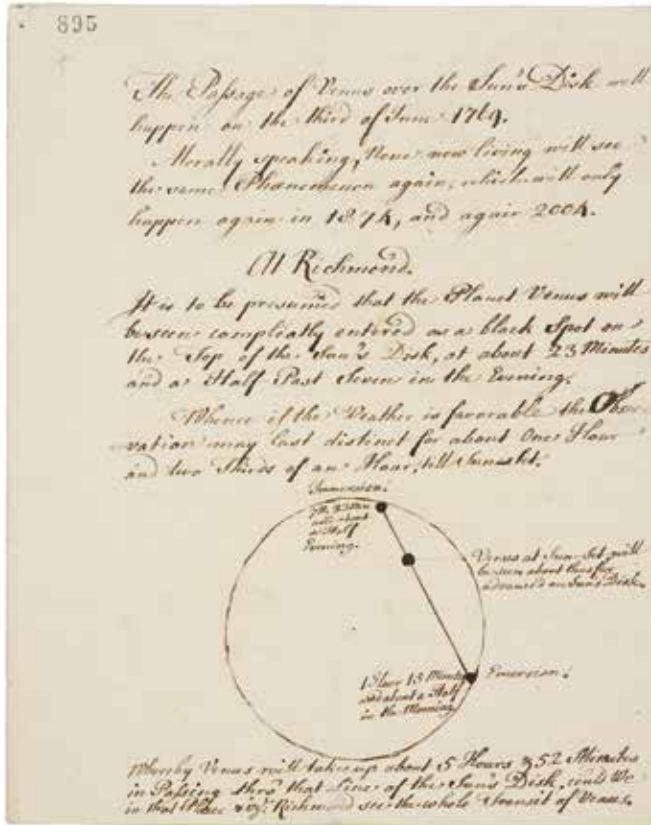 895
The Passage of Venus over the Sun's Disk will
happen on the third of June 1769.
Morally speaking, None now living will see
the same Phænomenon again, which will only
happen again in 1874, and again 2004.
At Richmond.
It is to be presumed that the Planet Venus will
be seen compleatly entered as a black Spot on
the Top of the Sun's Disk, at about 23 Minutes
and a Half Past Seven in the Evening.
Whence if the Weather is favorable the Obser
vation may last distinct for about One Hour
and two Thirds of an Hour, till Sunset.
Immersion.
and about
a Half
Evening.
Venus at Sun-Set will
be seen about thus far
advanced on Sun's Disk.
1 Hour 15 Minutes
and about a Half
in the Morning
Emersion.
Whereby Venus will take up about 5 Hours & 52 Minutes
in Passing thro' that Line of the Sun's Disk, could We
in that Place Richmond see the whole Transit of Venus.